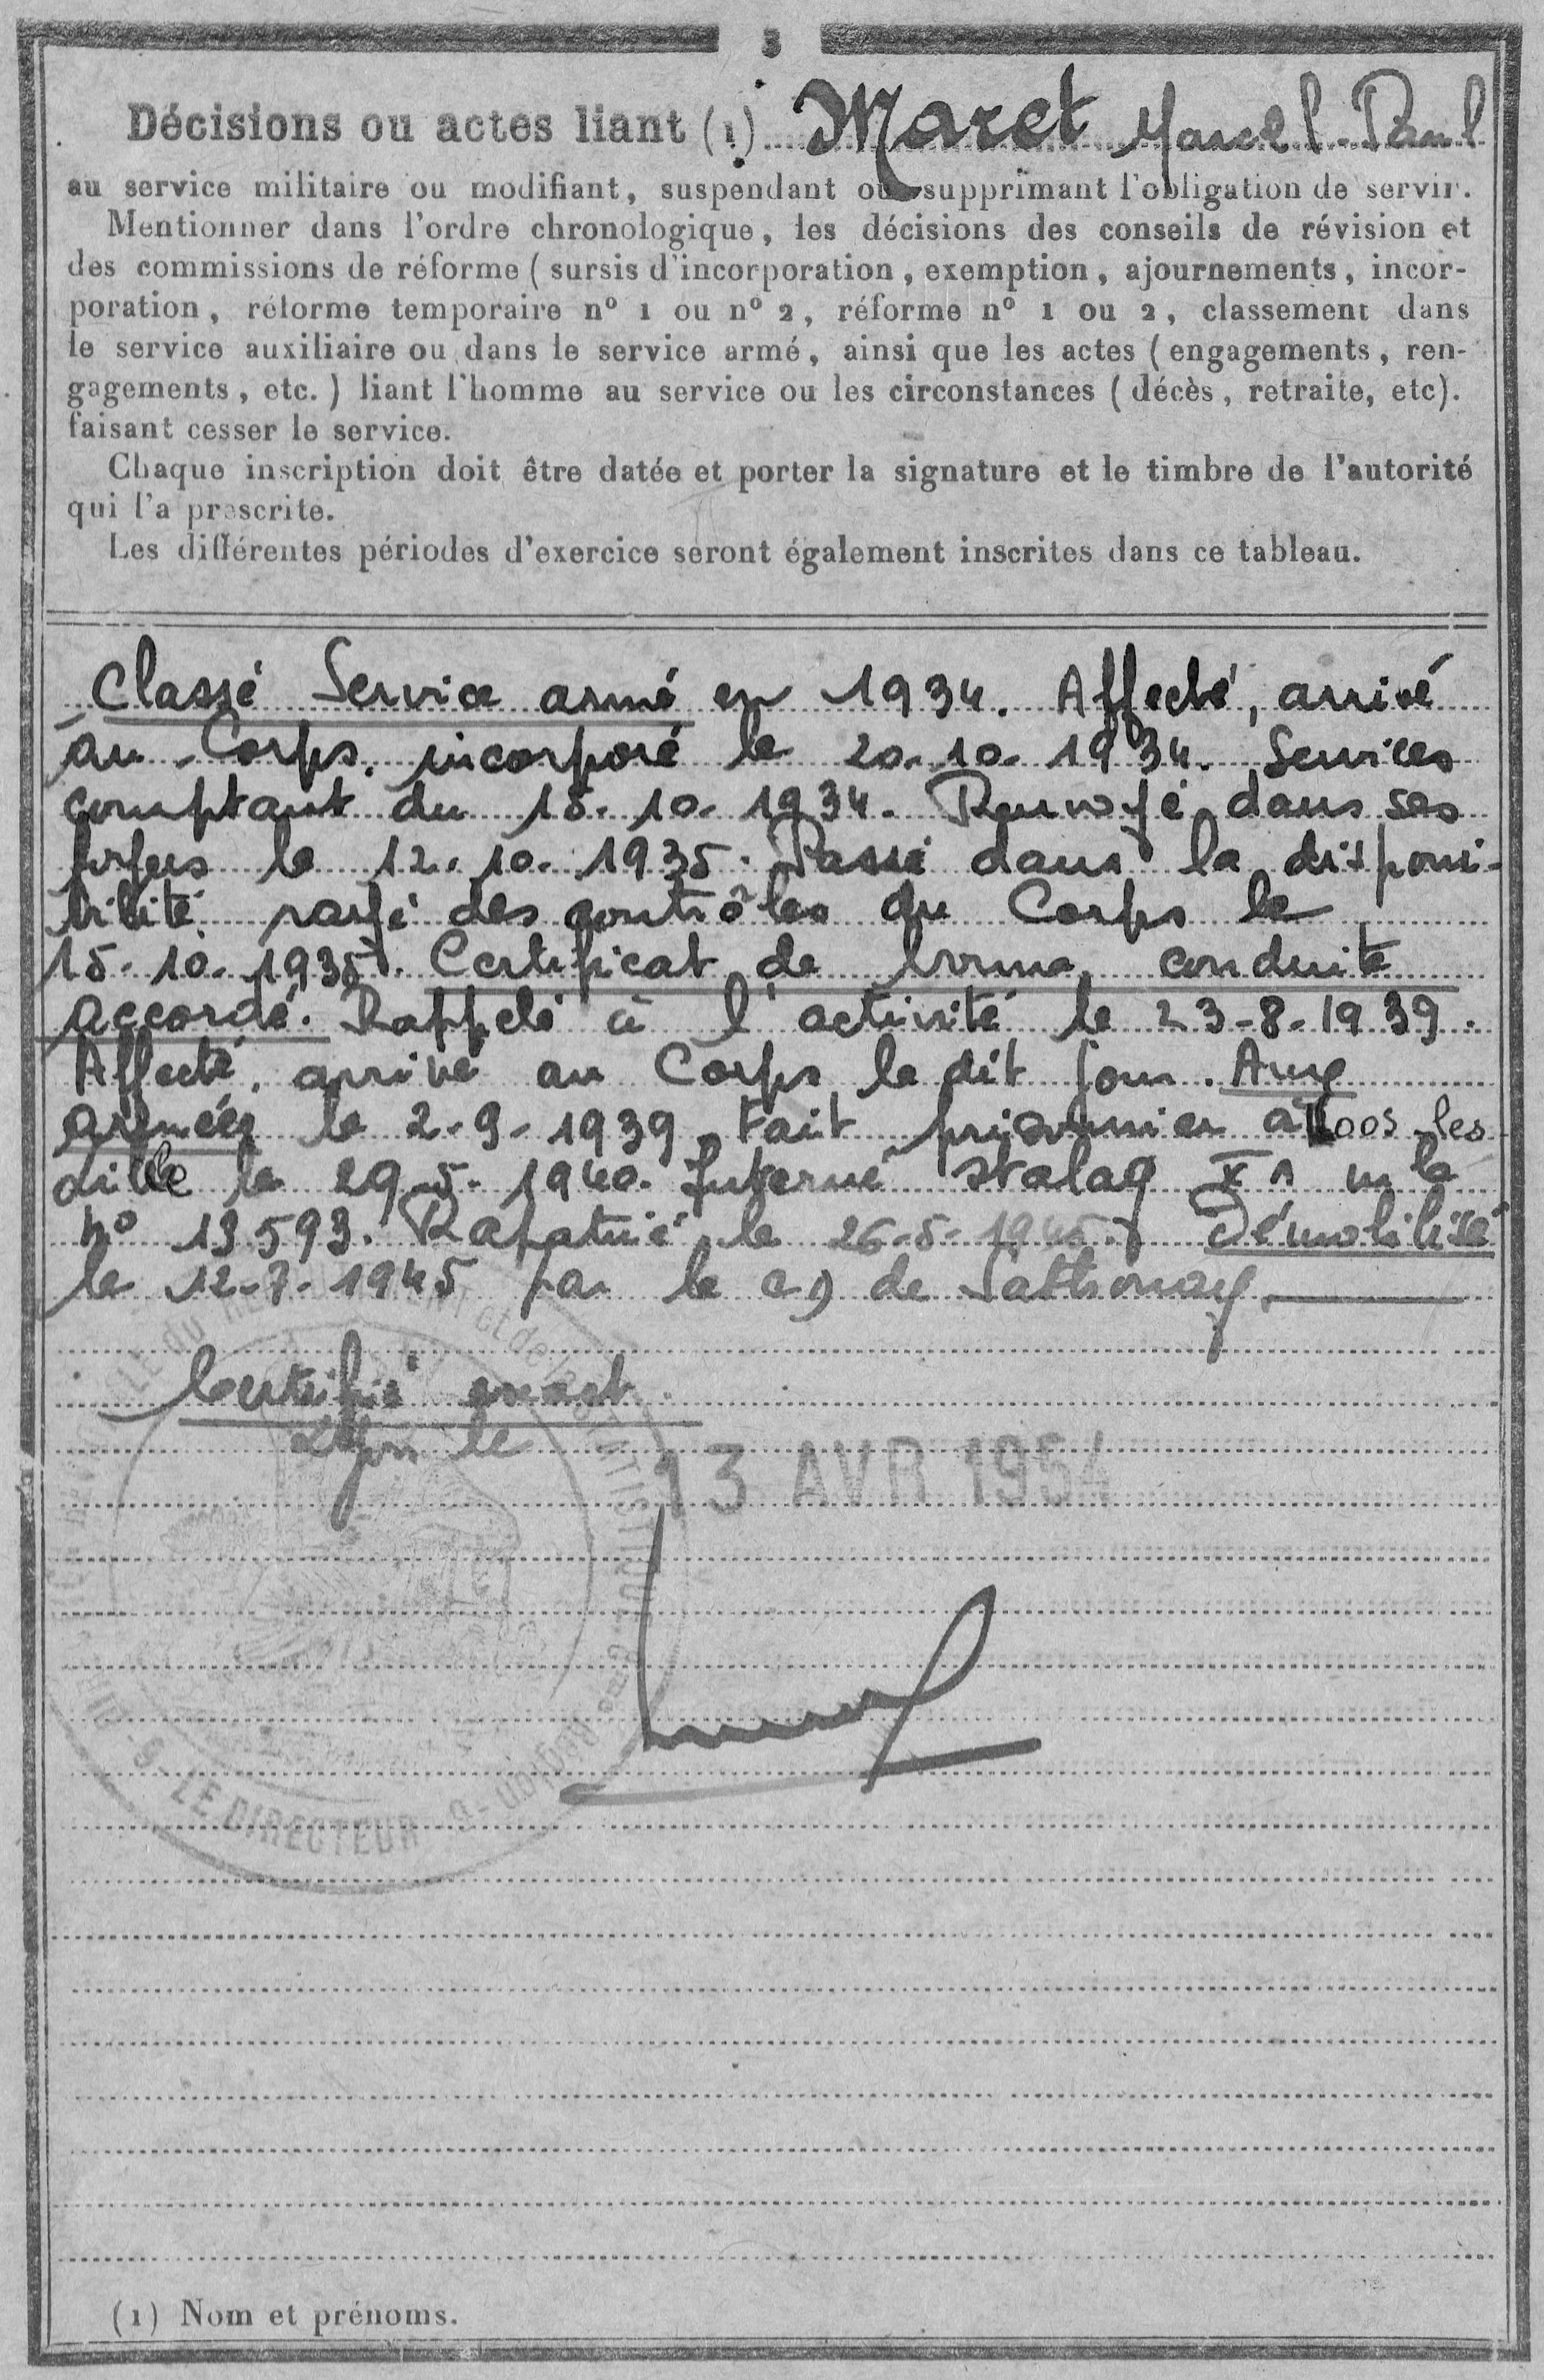 3
Décisions ou actes liant (1) Maret Marcel-Paul
au service militaire ou modifiant, suspendant ou supprimant l'obligation de servir.
Mentionner dans l'ordre chronologique, les décisions des conseils de révision et
des commissions de réforme (sursis d'incorporation, exemption, ajournements, incor-
poration, réforme temporaire nº 1 ou nº 2, réforme nº 1 ou 2, classement dans
le service auxiliaire ou dans le service armé, ainsi que les actes (engagements, ren-
gagements, etc.) liant l'homme au service ou les circonstances (décès, retraite, etc).
faisant cesser le service.
Chaque inscription doit être datée et porter la signature et le timbre de l'autorité
qui l'a prescrite.
Les différentes périodes d'exercice seront également inscrites dans ce tableau.
Classé Service armé en 1934. Affecté, arrivé
au Corps, incorporé le 20.10.1934. Services
comptant du 15.10.1934. Renvoyé dans ses
foyers le 12.10.1935. Passé dans la disponi-
bilité rayé des contrôles du Corps le
15.10.1935. Certificat de bonne conduite
accordé. Rappelé à l'activité le 23-8-1939.
Affecté, arrivé au Corps le dit jour. Aux
armées le 2-9-1939 Fait prisonnier à Loos-les
Lille le 29-5-1940. Interné Stalag X A mle
nº 13593. Rapatrié le 26-5-1945. Démobilisé
le 12-7-1945 par le CD de Sathonay
Certifié exact
Lyon le
13 AVR 1954
LE DIRECTEUR
(1) Nom et prénoms.